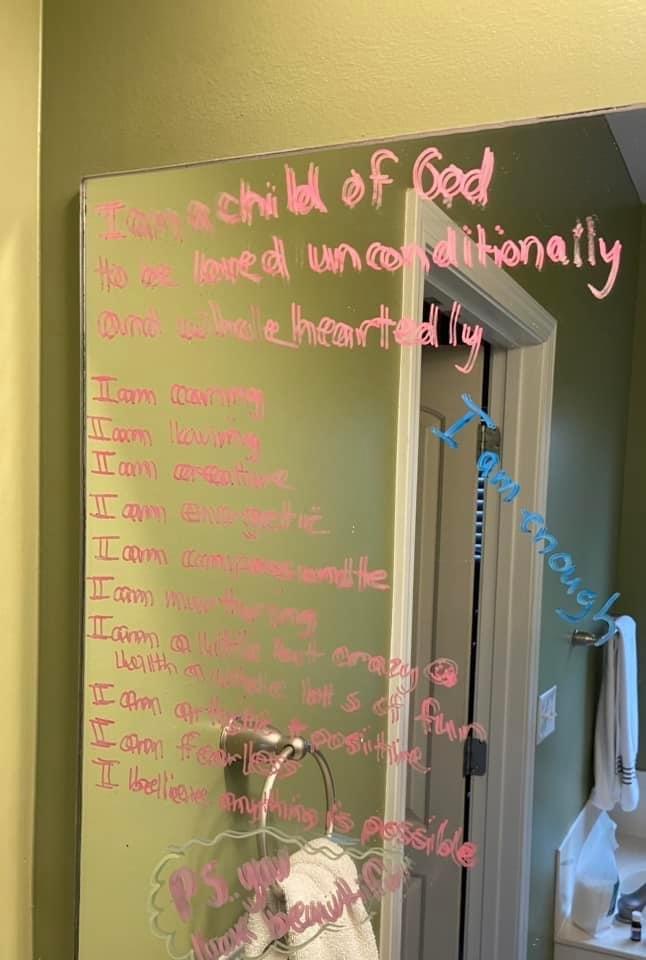 I am a child of God
to be loved unconditionally
and wholeheartedly
I am caring
I am loving
I am creative
I am energetic
I am compassionate
I am nurturing
I am a little bit crazy
with a whole lot s of fun
I am artistic + positive
I am fearless
I believe anything is possible
P.S. you
look beautiful
I am enough